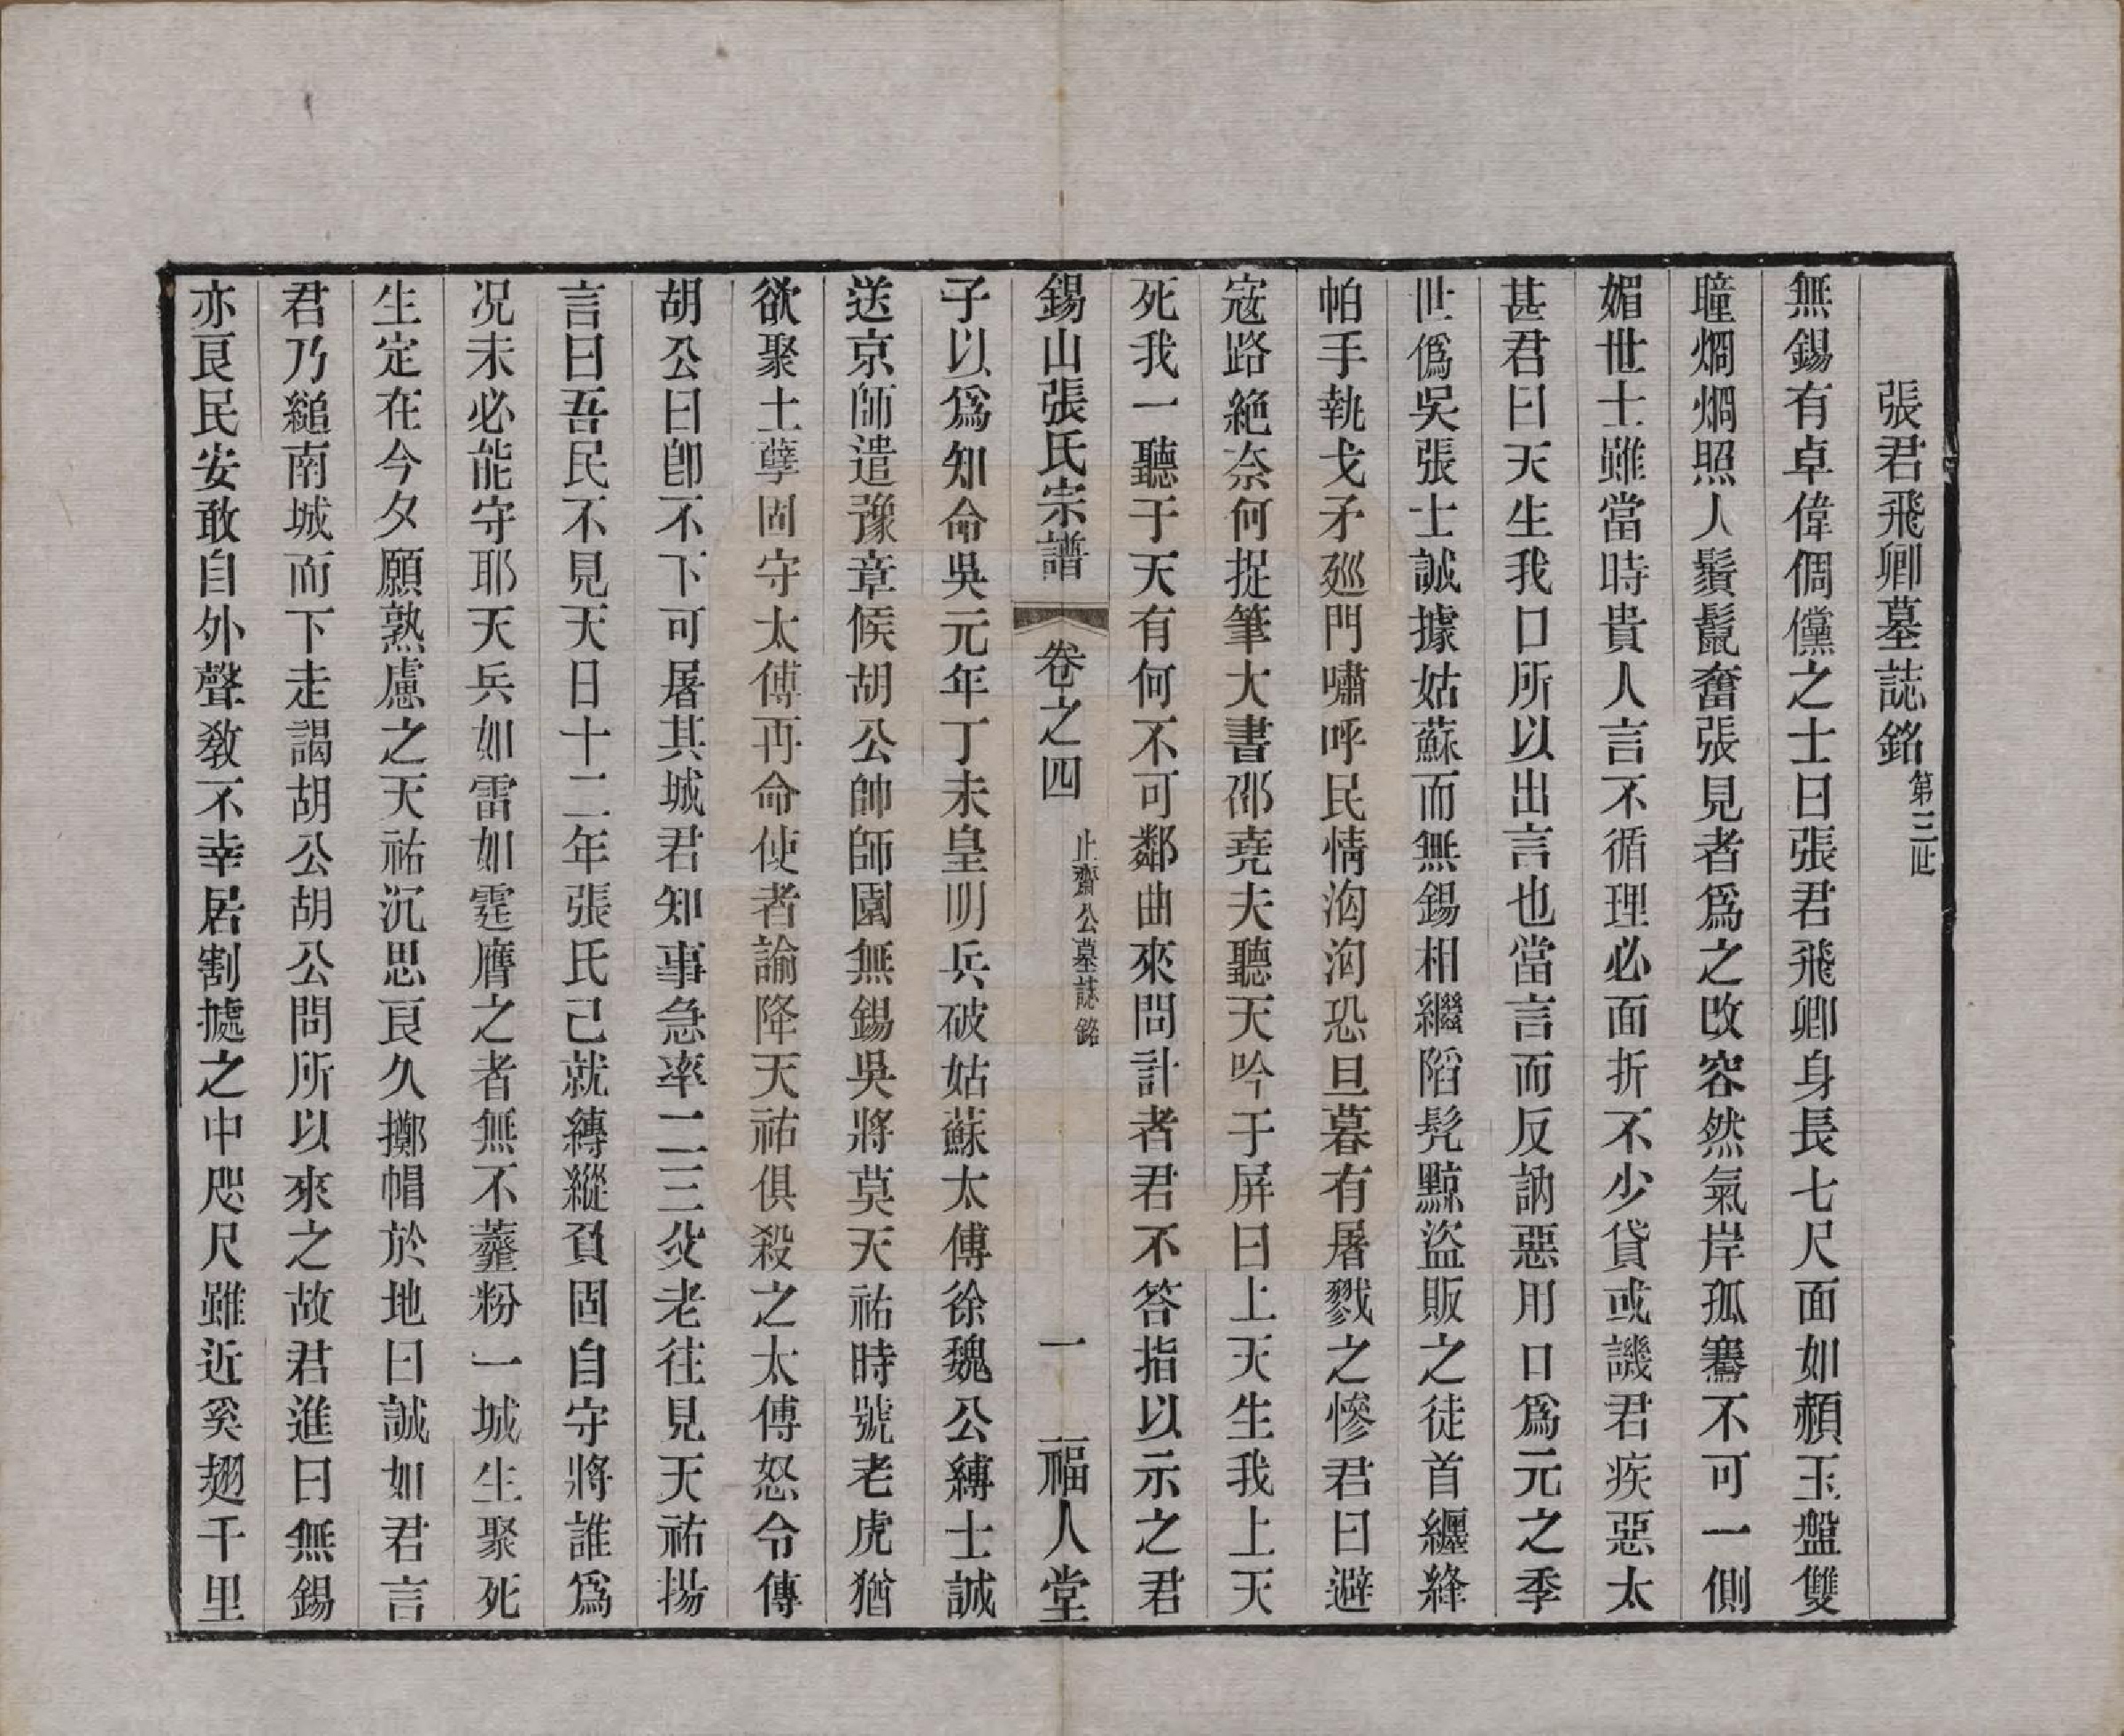 張君飛卿墓誌銘第三世
無錫有卓偉倜儻之士曰張君飛卿身長七尺面如頳玉盤雙
瞳烱烱照人鬚鬣奮張見者爲之改容然氣岸孤騫不可一側
媚世士雖當時貴人言不循理必面折不少貸或譏君疾惡太
甚君曰天生我口所以出言也當言而反訥惡用口爲元之季
世僞吳張士誠據姑蘇而無錫相繼陷髠黥盜販之徒首纒絳
帕手執戈矛廵門嘯呼民情洶洶恐旦暮有屠戮之慘君曰避
寇路絶奈何捉筆大書邵堯夫聽天吟于屏曰上天生我上天
死我一聽于天有何不可鄰曲來問計者君不答指以示之君
錫山張氏宗譜 卷之四 止齋公墓誌銘 一 福人堂
子以爲知命吳元年丁未皇明兵破姑蘇太傅徐魏公縛士誠
送京師遣豫章候胡公帥師圍無錫吳將莫天祐時號老虎猶
欲聚土孽固守太傅再命使者諭降天祐俱殺之太傅怒令傳
胡公曰卽不下可屠其城君知事急率二三父老往見天祐揚
言曰吾民不見天日十二年張氏己就縛縱負固自守將誰爲
况未必能守耶天兵如雷如霆膺之者無不虀粉一城生聚死
生定在今夕願熟慮之天祐沉思良久擲帽於地曰誠如君言
君乃縋南城而下走謁胡公胡公問所以來之故君進曰無錫
亦良民安敢自外聲教不幸居割據之中咫尺雖近奚翅千里